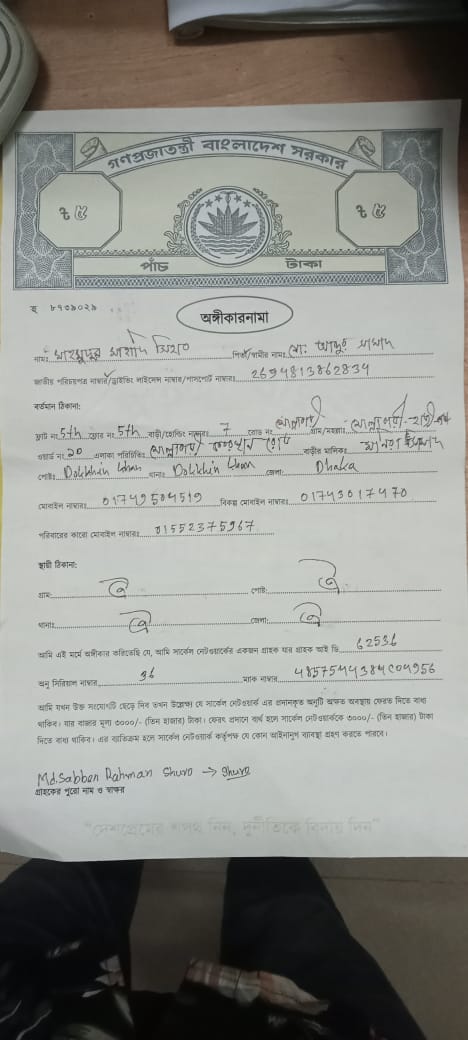 গণপ্রজাতন্ত্রী বাংলাদেশ সরকার
৳ ৫ ৳ ৫
পাঁচ টাকা
অঙ্গীকারনামা
নামঃ পিতা/স্বামীর নামঃ মো:
জাতীয় পরিচয়পত্র নাম্বার/ড্রাইভিং লাইসেন্স নাম্বার/পাসপোর্ট নাম্বারঃ 2694813862834
বর্তমান ঠিকানা:
ফ্লাট নং 5th ফ্লোর নং 5th বাড়ী/হোল্ডিং নাম্বারঃ 7 রোড নং গ্রাম/মহল্লাঃ
ওয়ার্ড নং 20 এলাকা পরিচিতিঃ রোড বাড়ীর মালিকঃ
পোষ্টঃ Dokkhin khan থানাঃ Dokkhin khan জেলা: Dhaka
মোবাইল নাম্বারঃ 01749504519 বিকল্প মোবাইল নাম্বারঃ 01743017470
পরিবারের কারো মোবাইল নাম্বারঃ 01552375967
স্থায়ী ঠিকানা:
গ্রাম: ঐ পোষ্ট: ঐ
থানাঃ ঐ জেলা: ঐ
আমি এই মর্মে অঙ্গীকার করিতেছি যে, আমি সার্কেল নেটওয়ার্কের একজন গ্রাহক যার গ্রাহক আই ডি 62536
অনু সিরিয়াল নাম্বার 36 ম্যাক নাম্বার
আমি যখন উক্ত সংযোগটি ছেড়ে দিব তখন উল্লেখ্য যে সার্কেল নেটওয়ার্ক এর প্রদানকৃত অনুটি অক্ষত অবস্থায় ফেরত দিতে বাধ্য
থাকিব। যার বাজার মূল্য ৩০০০/- (তিন হাজার) টাকা। ফেরৎ প্রদানে ব্যর্থ হলে সার্কেল নেটওয়ার্ককে ৩০০০/- (তিন হাজার) টাকা
দিতে বাধ্য থাকিব। এর ব্যতিক্রম হলে সার্কেল নেটওয়ার্ক কর্তৃপক্ষ যে কোন আইনানুগ ব্যবস্থা গ্রহণ করতে পারবে।
Md.Sabber Rahman Shuvo → Shuvo
গ্রাহকের পুরো নাম ও স্বাক্ষর
"দেশপ্রেমের শপথ নিন, দুর্নীতিকে বিদায় দিন"